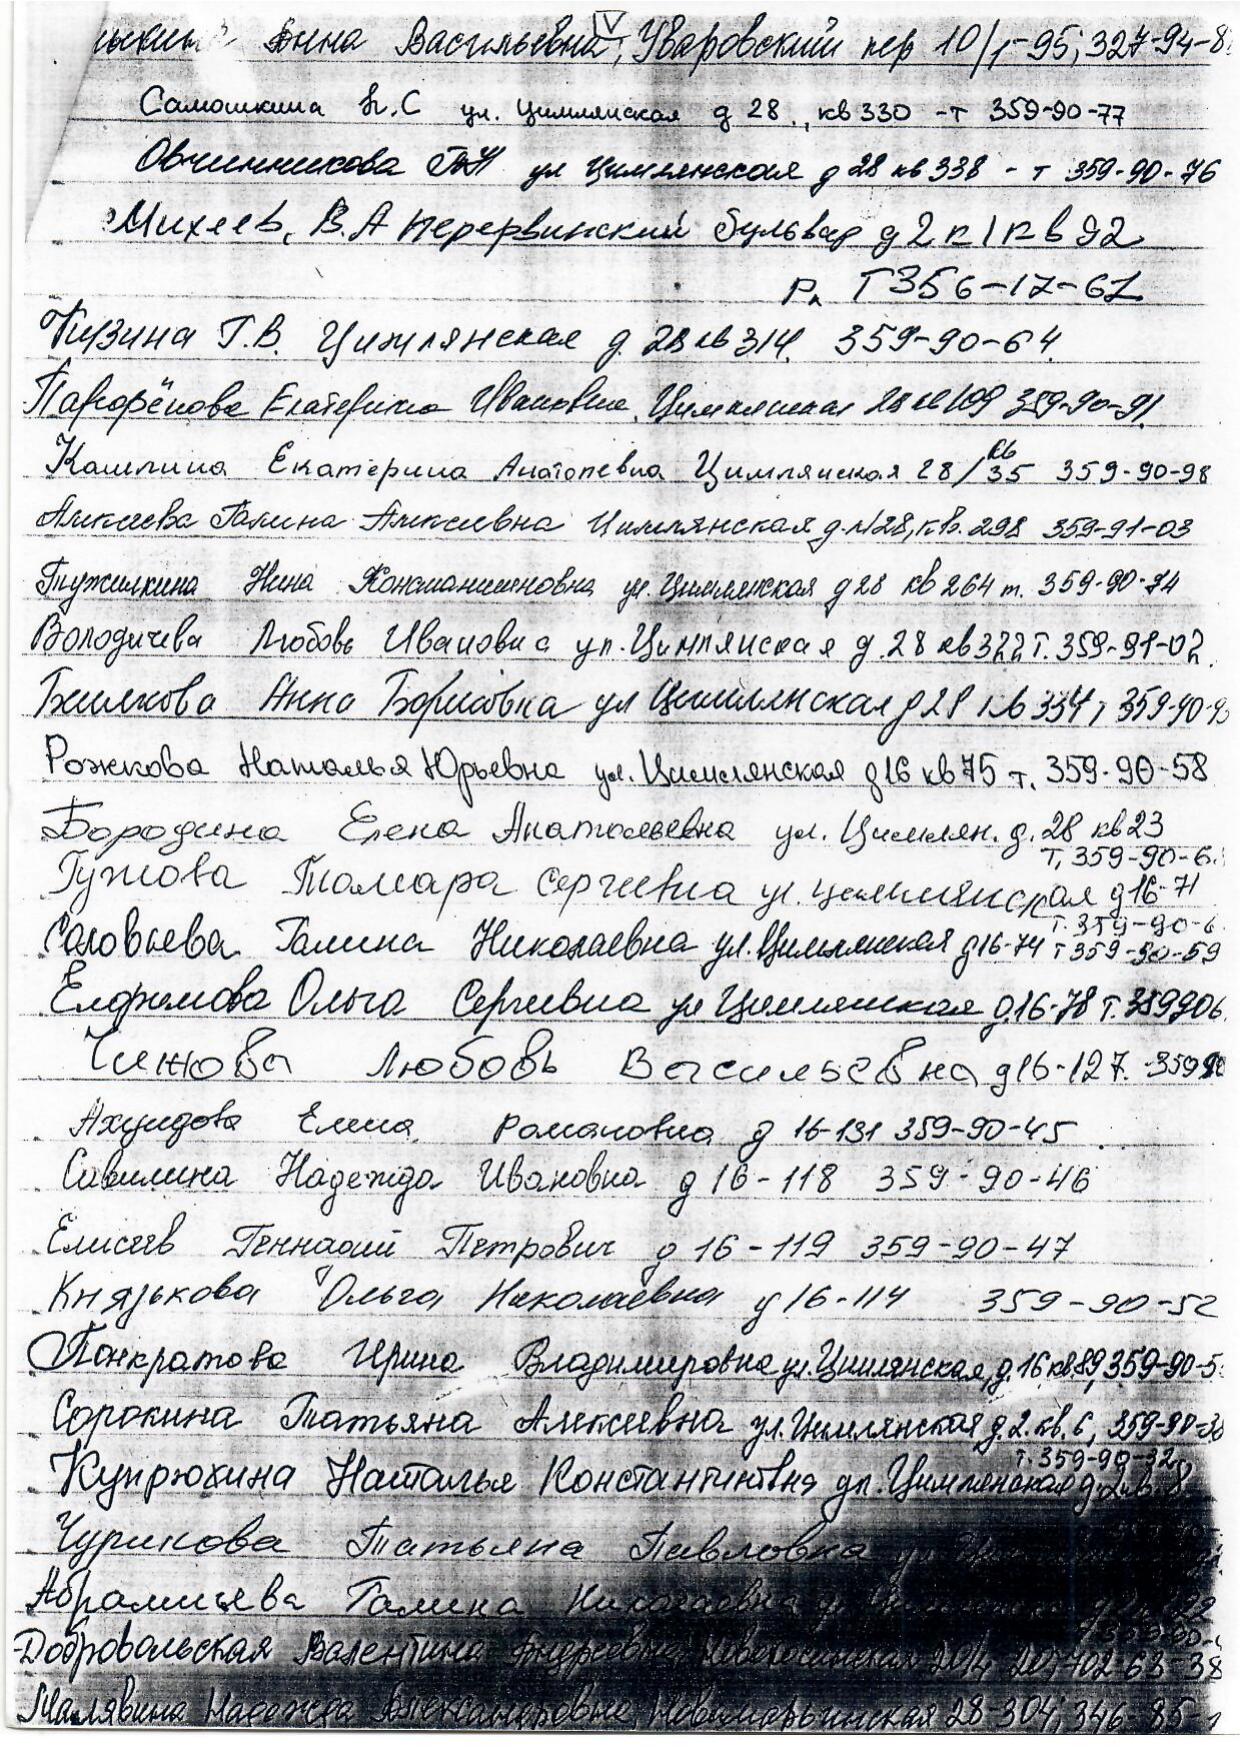 V
Анна Васильевна, Уваровский пер 10/1-95; 327-94-8
Самошкина Н.С ул. Цимлянская д 28, кв 330 -т 359-90-77
Овчинникова ул Цимлянская д 28 кв 338 - т 359-90-76
Михеев, В.А Перервинский бульвар д 2 к 1 кв 92
Т 356-17-61
Кузина Г.В. Цимлянская д. 28 кв 314. 359-90-64
Парфёнова Екатерина Ивановна, Цимлянская 28 кв 109 359-90-91.
Кашлина Екатерина Анатольевна Цимлянская 28/кв 35 359-90-98
Алексеева Галина Алексеевна Цимлянская д. 28, кв. 298 359-91-03
Тужилкина Нина Константиновна ул. Цимлянская д 28 кв 264 т. 359-90-74
Володичева Любовь Ивановна ул. Цимлянская д. 28 кв 322 т. 359-91-02.
Анна Борисовна ул Цимлянская д 28 кв 334 т 359-90-9
Рожкова Наталья Юрьевна ул. Цимлянская д 16 кв 75 т. 359-90-58
Бородина Елена Анатольевна ул. Цимлян. д. 28 кв 23
т. 359-90-6
Гужова Тамара Сергеевна ул. Цимлянская д 16-71
т. 359-90-6
Соловьева Галина Николаевна ул. Цимлянская д 16-74 т 359-90-59
Ефремова Ольга Сергеевна ул Цимлянская д. 16-78 т. 359906
Чижова Любовь Васильевна д 16-127. 35990
Ахундова Елена Романовна д 16-131 359-90-45
Савилина Надежда Ивановна д 16-118 359-90-46
Елисеев Геннадий Петрович д 16-119 359-90-47
Князькова Ольга Николаевна д 16-114 359-90-52
Панкратова Ирина Владимировна ул. Цимлянская, д. 16 кв. 89, 359-90-5
Сорокина Татьяна Алексеевна ул. Цимлянская д. 2. кв. 6, 359-90-30
т. 359-90-32
Купрюхина Наталья Константиновна ул. Цимлянская д. 2 кв. 8
Чурикова Татьяна Павловна ул
Абрамцева Галина Николаевна
Добровольская Валентина Андреевна 702-63-38
Малявина Надежда Александровна, Новомарьинская 28-304; 346-85-1